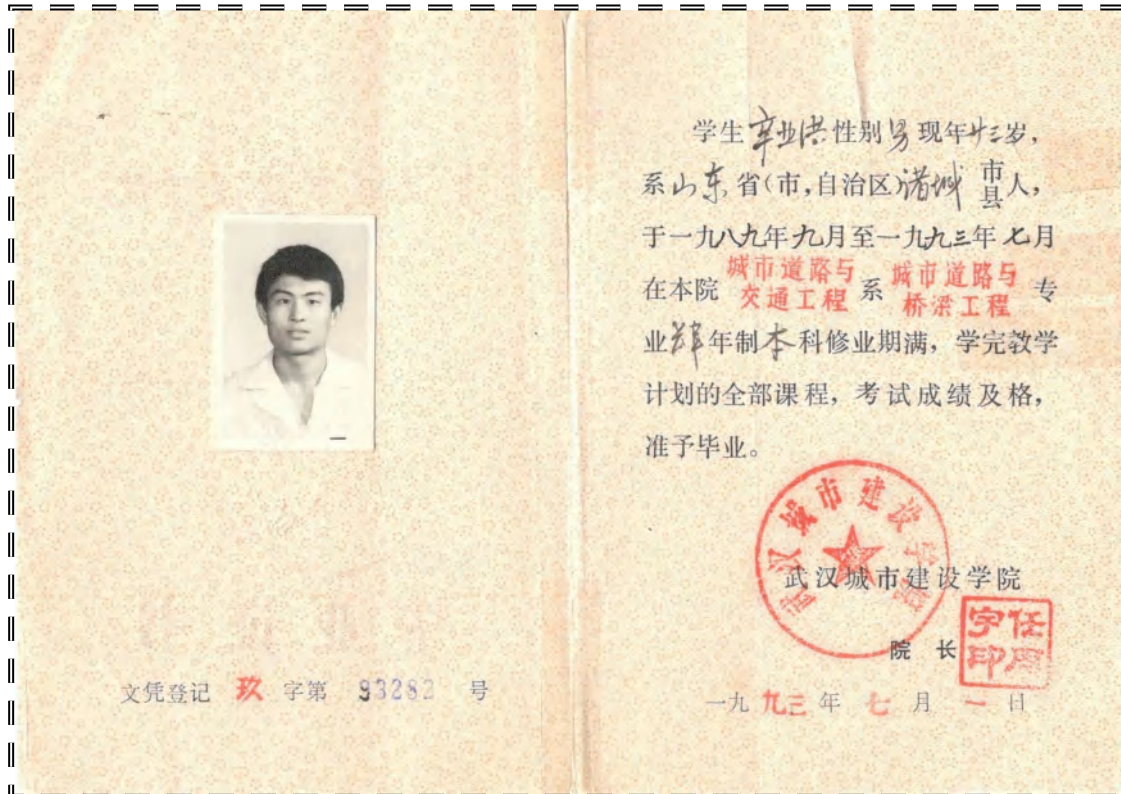 文凭登记 玖 字第 93282 号
学生辛业洪性别男现年廿三岁,
系山东省(市,自治区)诸城 市县人,
于一九八九年九月至一九九三年七月
在本院 城市道路与交通工程 系 城市道路与桥梁工程 专
业 年制本科修业期满, 学完教学
计划的全部课程, 考试成绩及格,
准予毕业。
武汉城市建设学院
武汉城市建设学院
院长
任周宇印
一九九三年七月一日